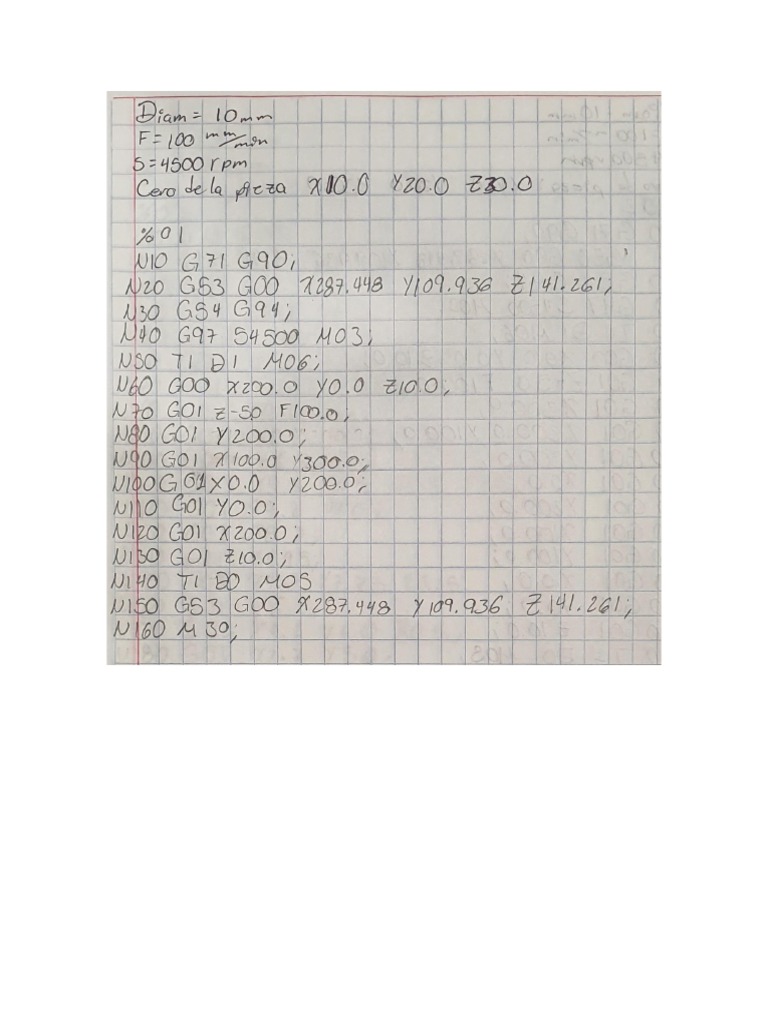 Diam = 10mm
F=100 mm/min
S=4500 rpm
Cero de la pieza X10.0 Y20.0 Z30.0
%01
N10 G71 G90;
N20 G53 G00 X287.448 Y109.936 Z141.261;
N30 G54 G94;
N40 G97 S4500 M03;
N50 T1 D1 M06;
N60 G00 X200.0 Y0.0 Z10.0;
N70 G01 Z-50 F100.0;
N80 G01 Y200.0;
N90 G01 X100.0 Y300.0;
N100 G01 X0.0 Y200.0;
N110 G01 Y0.0;
N120 G01 X200.0;
N130 G01 Z10.0;
N140 T1 D0 M05
N150 G53 G00 X287.448 Y109.936 Z141.261;
N160 M30;